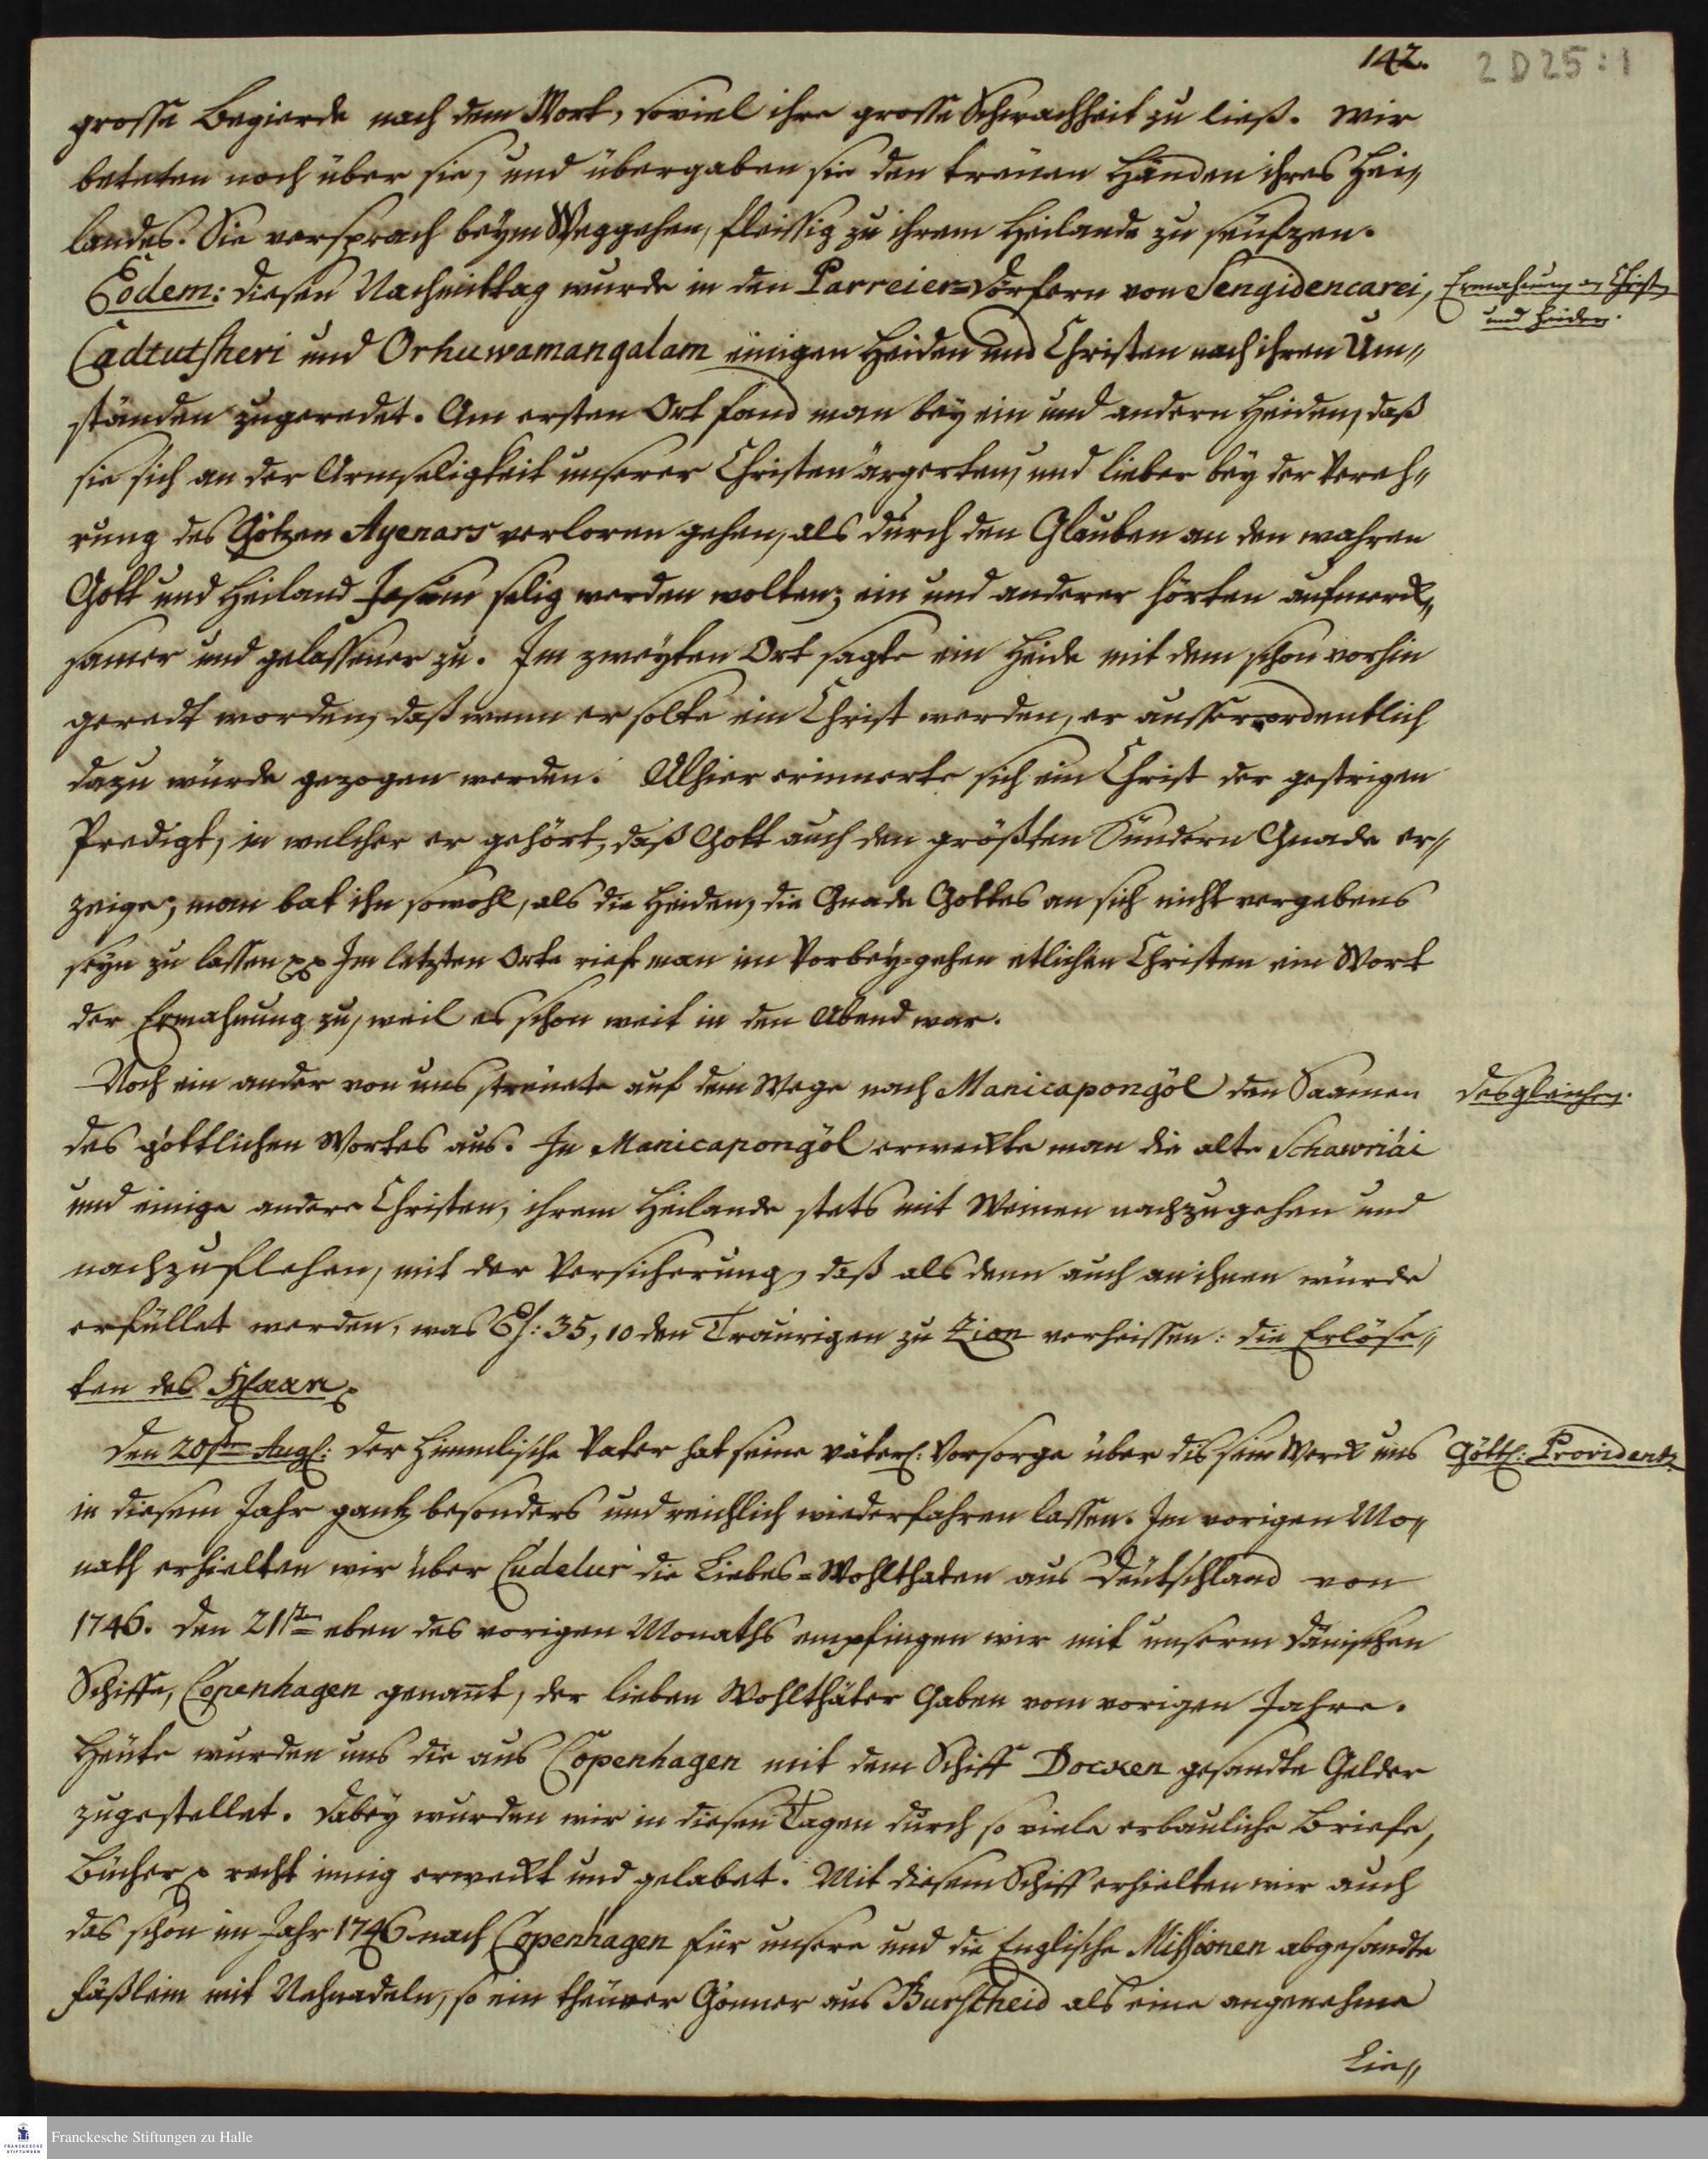 142.
2 D 25 : 1
grosse Begierde nach dem Wort, soviel ihre grosse Schwachheit zu ließ. Wir
beteten noch über sie, und übergaben sie den treuen Händen ihres Hei„
landes. Sie versprach beym Weggehen, fleissig zu ihrem Heilande zu seufzen.
Eodem: diesen Nachmittag wurde in den Parreier=Dörfern von Sengidencarei,
Ermahnung an Christen
und Heiden.
Cadtutsheri und Orhuwamangalam einigen Heiden und Christen nach ihren Um„
ständen zugeredet. Am ersten Ort fand man bey ein und andern Heiden, daß
sie sich an der Armseligkeit unserer Christen ärgerten, und lieber bey der Vereh„
rung des Götzen Ayenars verloren gehen, als durch den Glauben an den wahren
Gott und Heiland Jesum selig werden wolten; ein und anderer hörten aufmerck„
samer und gelassener zu. Im zweyten Ort sagte ein Heide mit dem schon vorhin
geredt worden, daß wenn er solte ein Christ werden, er ausserordentlich
dazu würde gezogen werden. Alhier erinnerte sich ein Christ der gestrigen
Predigt, in welcher er gehört, daß Gott auch den größten Sündern Gnade er„
zeige; man bat ihn sowohl, als die Heiden, die Gnade Gottes an sich nicht vergebens
seyn zu lassen pp Im letzten Orte rief man im Vorbey=gehen etlichen Christen ein Wort
der Ermahnung zu, weil es schon weit in den Abend war.
Noch ein ander von uns streuete auf dem Wege nach Manicapongöl den Saamen
desgleichen.
des göttlichen Wortes aus. In Manicapongöl erweckte man die alte Schawriäi
und einige andere Christen, ihrem Heilande stets mit Weinen nachzugehen und
nachzuflehen, mit der Versicherung, daß als denn auch an ihnen würde
erfüllet werden, was Es: 35, 10 den Traurigen zu Zion verheissen: die Erlöse„
ten des HErrn p
Den 20sten Aug: Der Himmlische Vater hat seine väterl: Vorsorge über dis sein Werck uns
Göttl: Providentz
in diesem Jahr gantz besonders und reichlich wiederfahren lassen. Im vorigen Mo„
nath erhielten wir über Cudelur die Liebes=Wohlthaten aus Deutschland von
1746. Den 21sten eben des vorigen Monaths empfingen wir mit unserm Dänischen
Schiffe, Copenhagen genant, der lieben Wohlthäter Gaben vom vorigen Jahre.
Heute wurden uns die aus Copenhagen mit dem Schiff Docken gesandte Gelder
zugestellet. Dabey wurden wir in diesen Tagen durch so viele erbauliche Briefe,
Bücher p recht innig erweckt und gelabet. Mit diesem Schiff erhielten wir auch
das schon im Jahr 1746 nach Copenhagen für unsere und die Englische Missionen abgesandte
Fäßlein mit Nehnadeln, so ein theurer Gönner aus Burscheid als eine angenehme
Lie„
FRANCKESCHE
STIFTUNGEN
Franckesche Stiftungen zu Halle